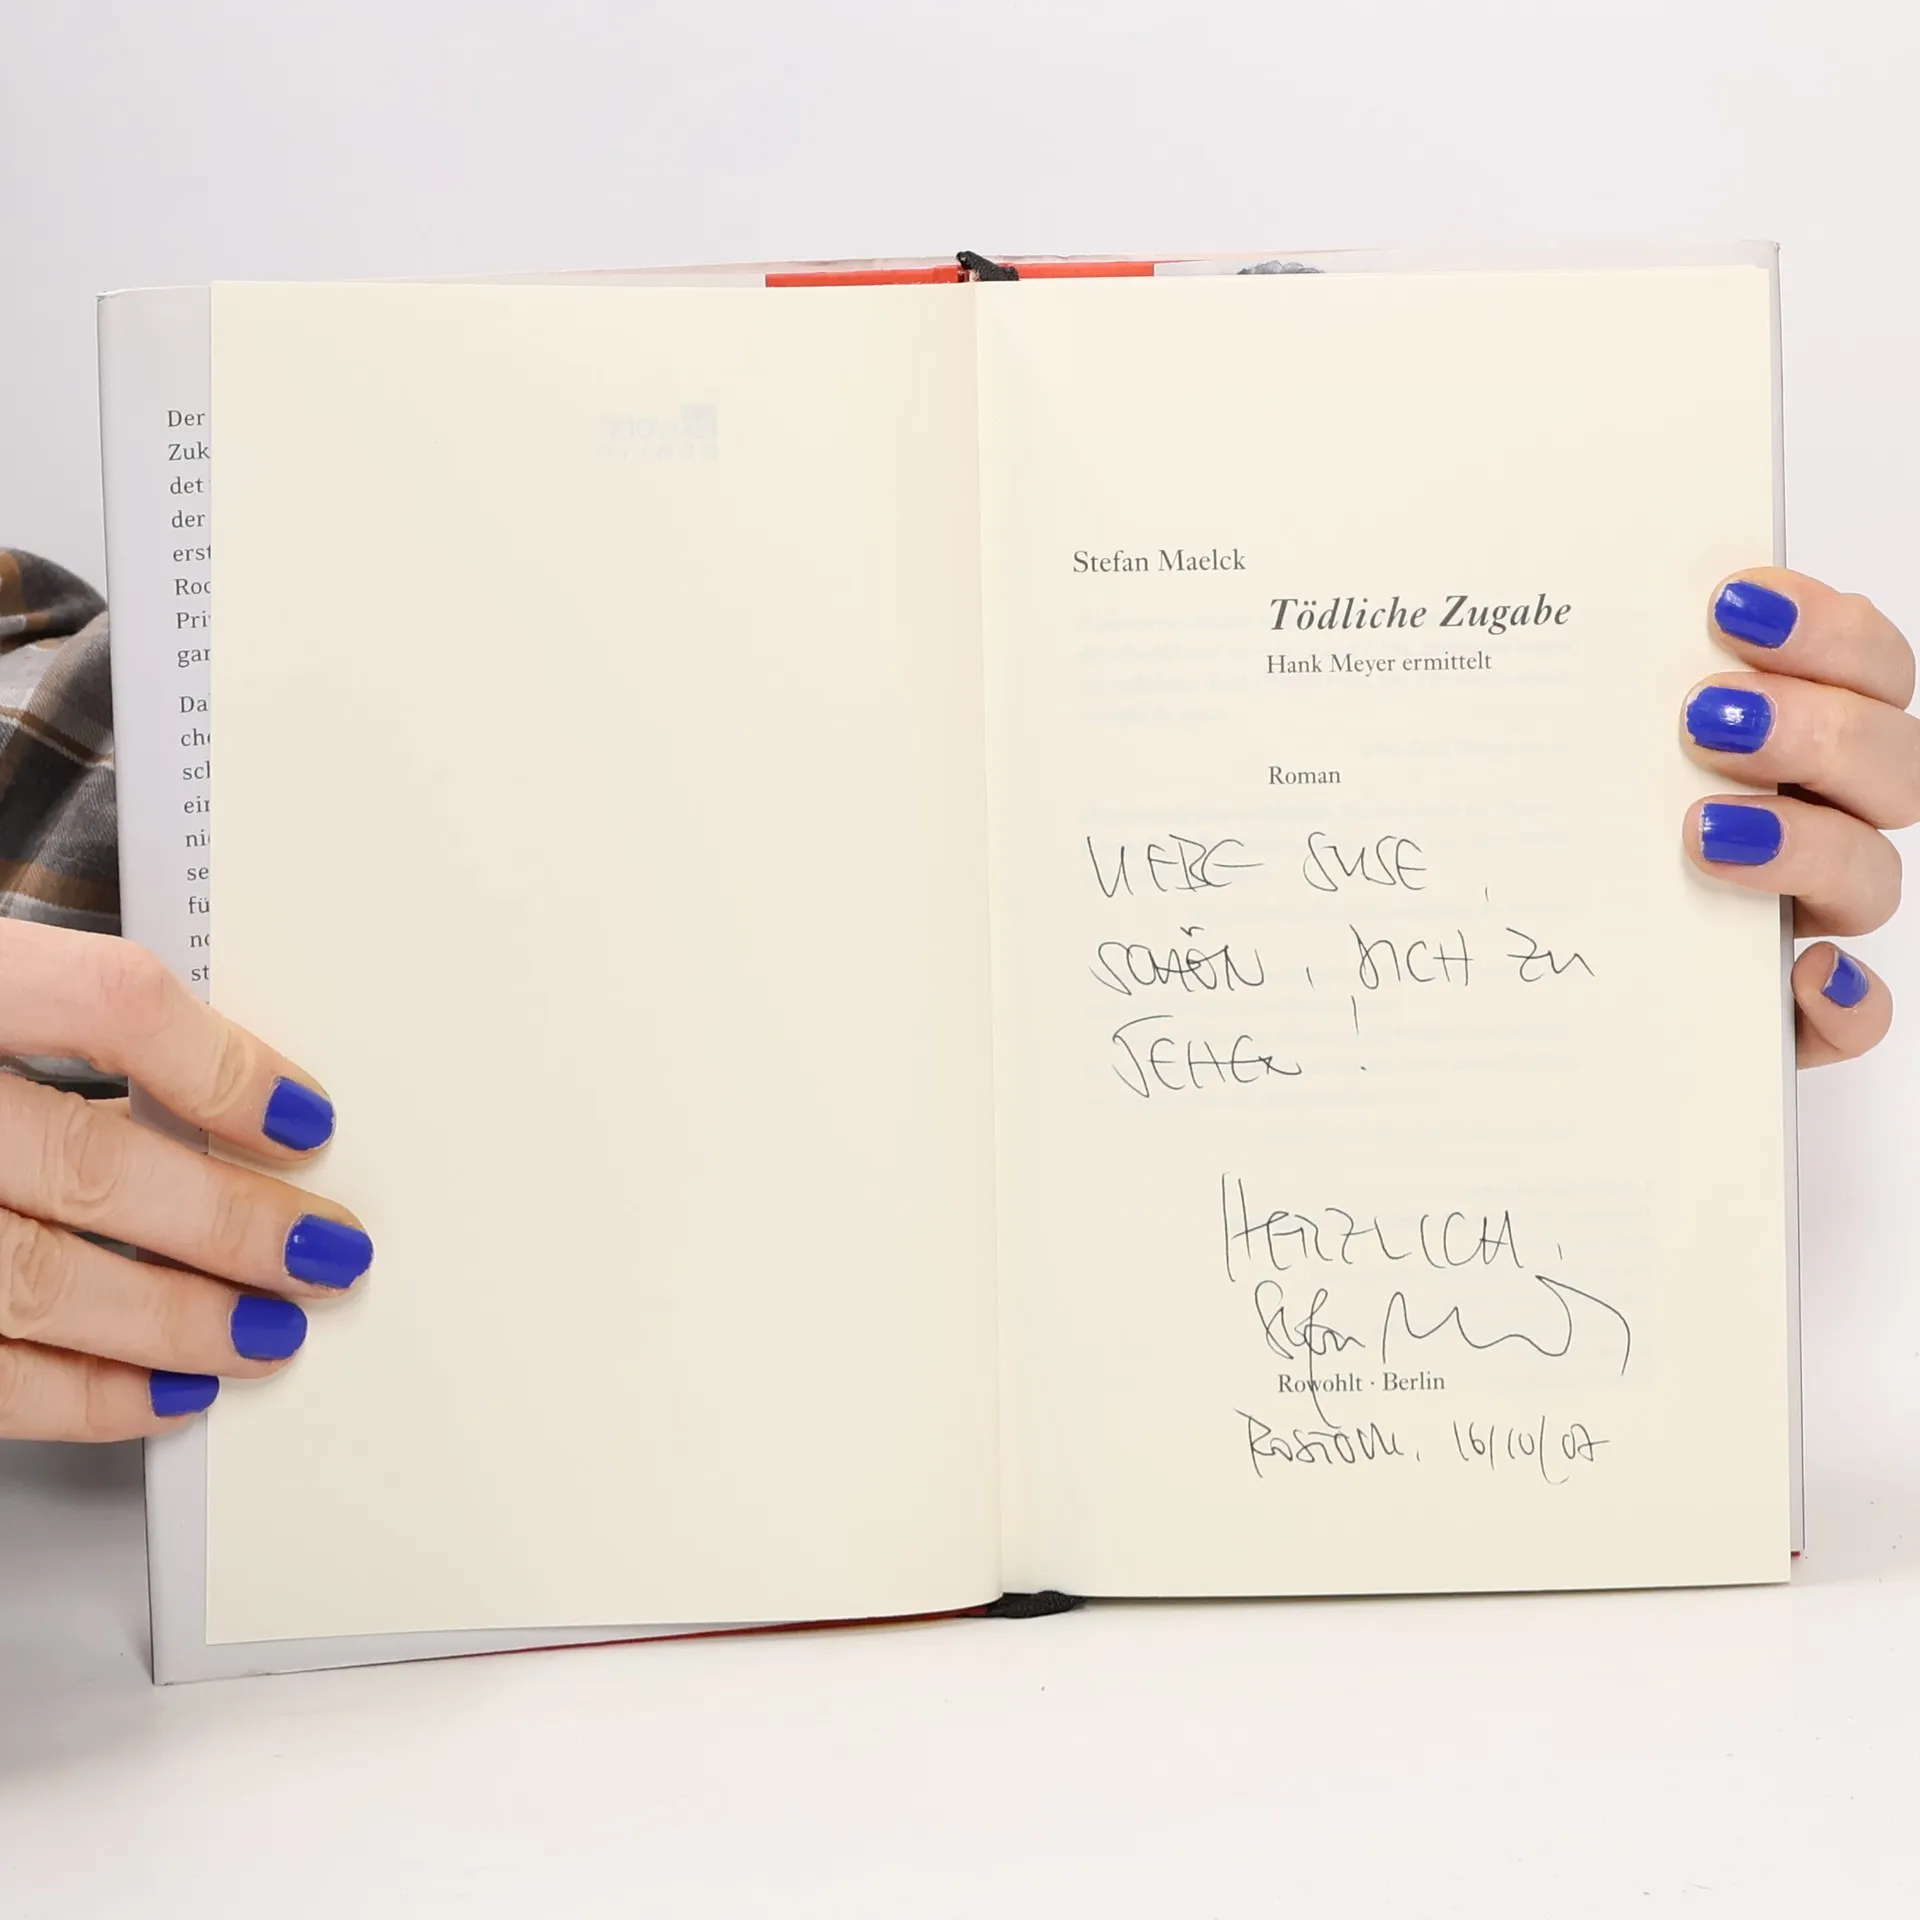 Der
Zuk
det
der
erst
Roc
Pri
gar
Da
che
sch
ein
nic
se
fü
no
st
Stefan Maelck
Tödliche Zugabe
Hank Meyer ermittelt
Roman
LIEBE SUSE,
SCHÖN, DICH ZU
SEHEN!
HERZLICH,
Stefan Maelck
Rowohlt · Berlin
ROSTOCK, 16/10/07